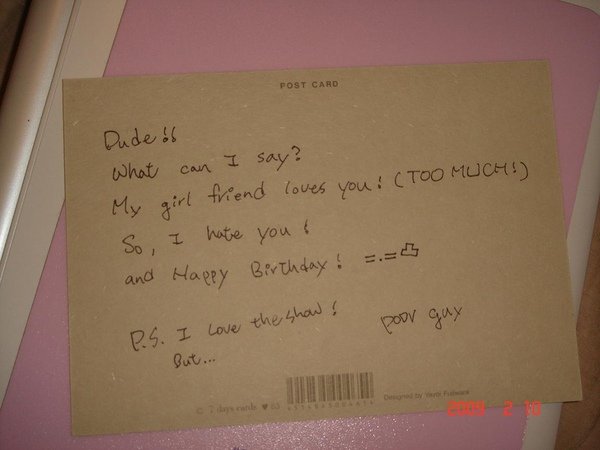 POST CARD
Dude!!
What can I say?
My girl friend loves you! (TOO MUCH!)
So, I hate you!
and Happy Birthday! =.=凸
P.S. I Love the show!
But...
poor guy
© 7 days cards ♥ 83
Designed by
2009 2 10